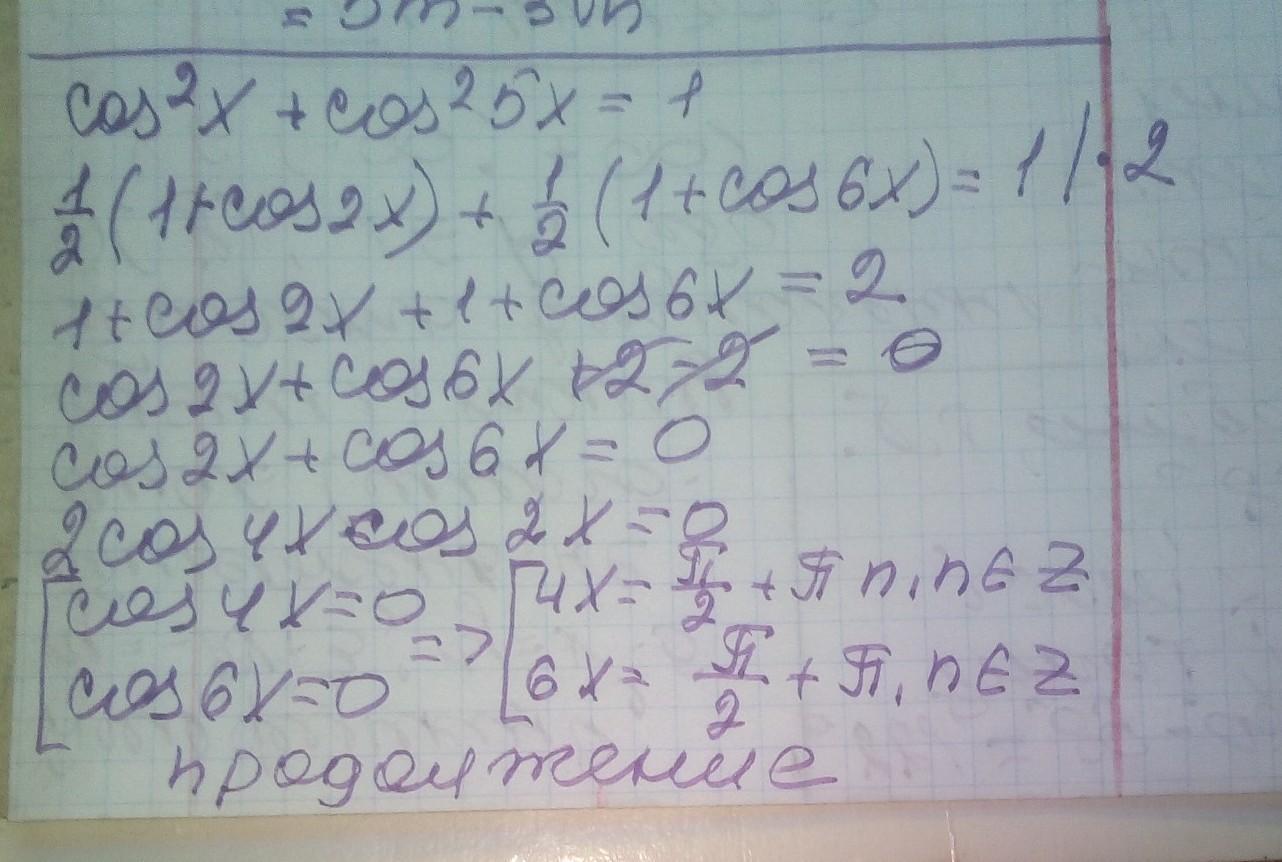 cos²x + cos²5x = 1
1/2 (1+cos2x) + 1/2 (1+cos6x) = 1 |·2
1+cos2x+1+cos6x = 2
cos2x+cos6x +2-2 = 0
cos2x+cos6x=0
2cos4x cos2x=0
[cos4x=0 => [4x= π/2 + πn, n∈Z
[cos6x=0 [6x= π/2 + π, n∈Z
продолжение